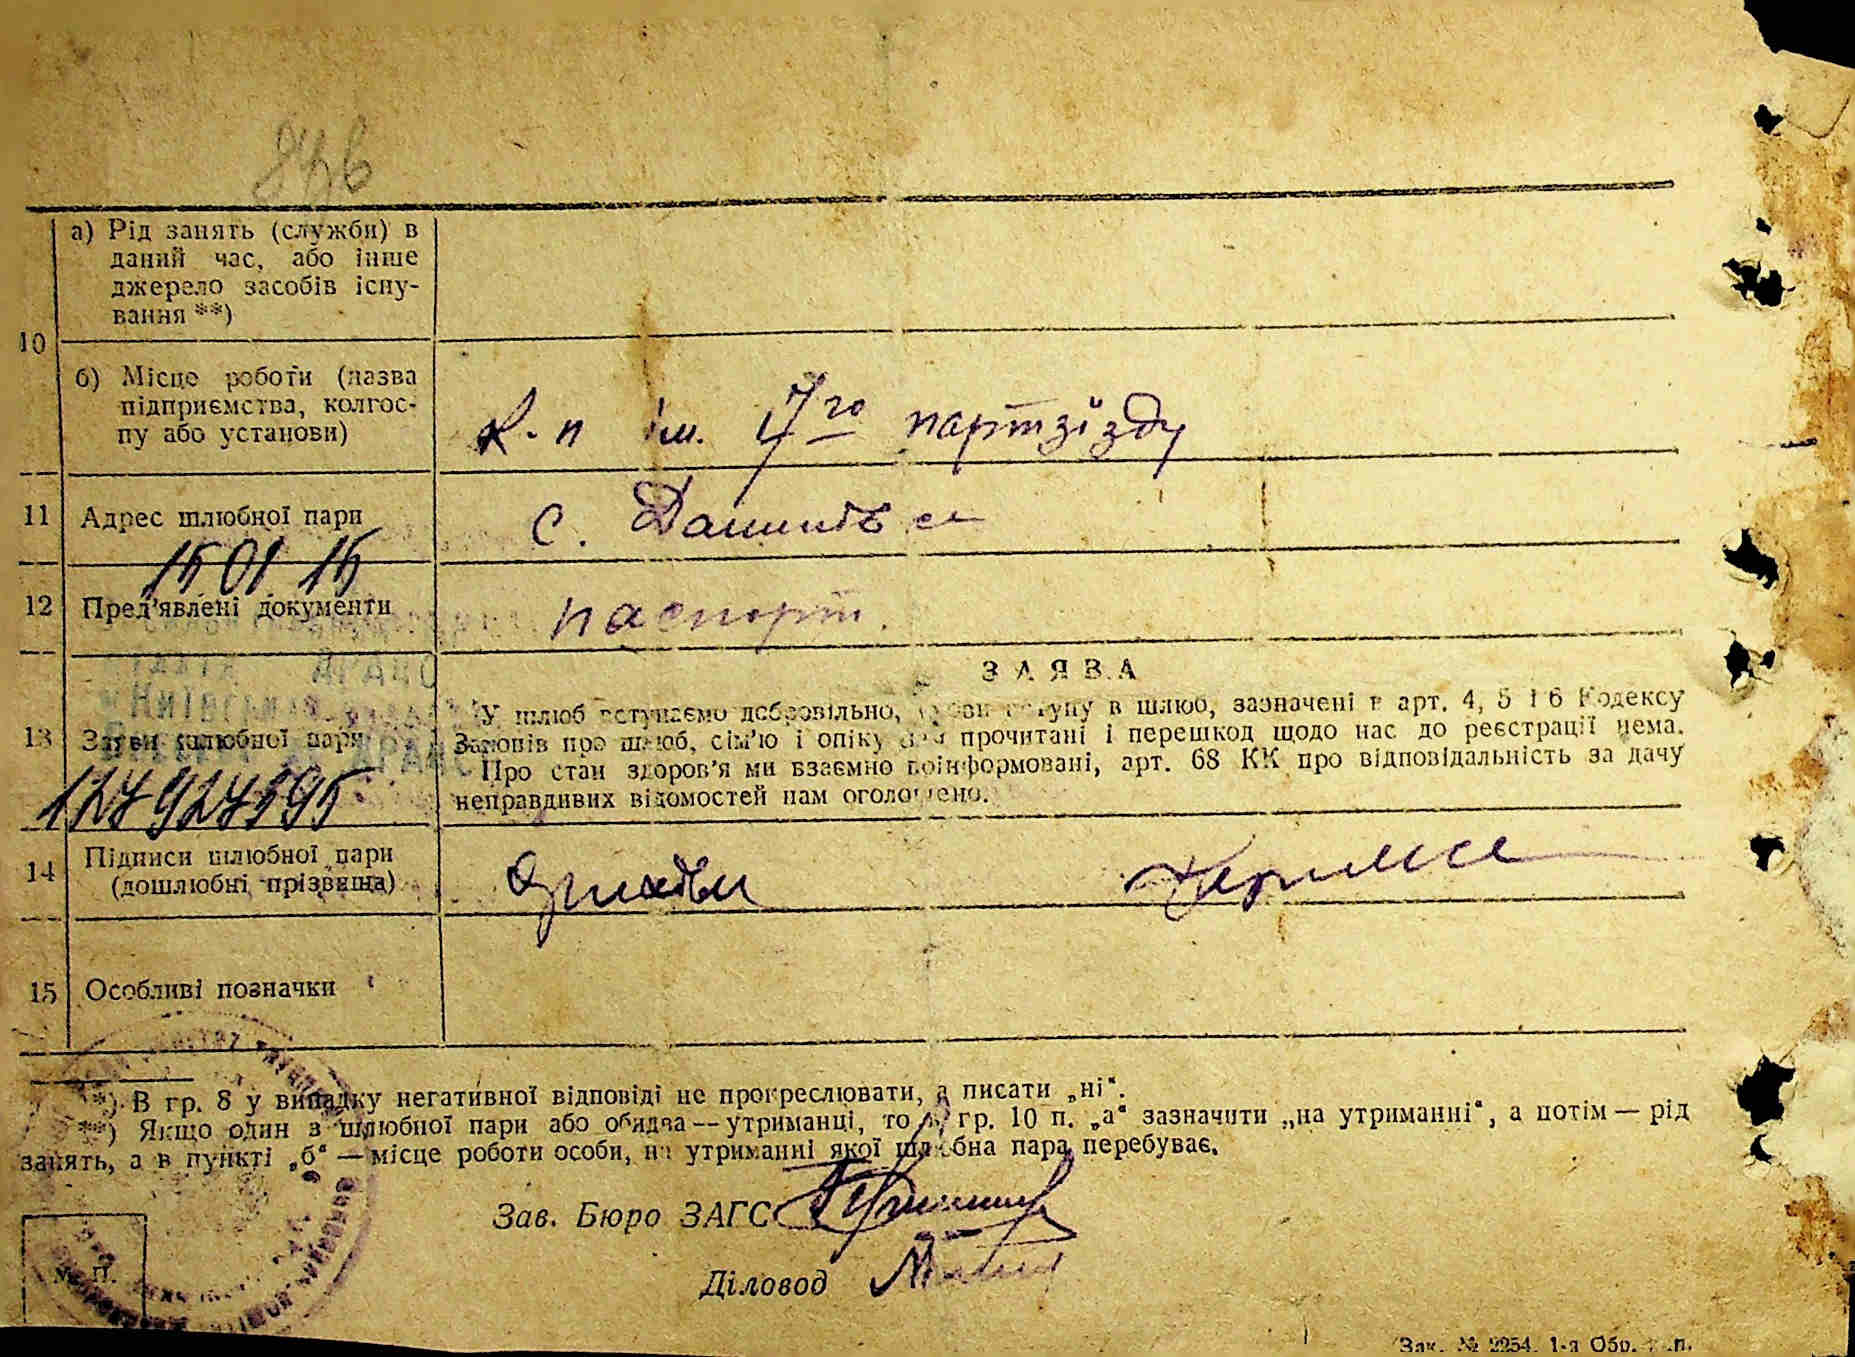 а) Рід занять (служби) в
даний час, або інше
джерело засобів існу-
вання **)
10
б) Місце роботи (назва
підприємства, колгос-
пу або установи)
к-п ім. 17го партзїзду
11 Адрес шлюбної пари
с.
15 01 15
12 Пред'явлені документи
паспорт.
ЗАЯВА
У шлюб вступаємо добровільно, умови вступу в шлюб, зазначені в арт. 4, 5 і 6 Кодексу
Законів про шлюб, сім'ю і опіку нам прочитані і перешкод щодо нас до реєстрації нема.
13 Заяви шлюбної пари
Про стан здоров'я ми взаємно поінформовані, арт. 68 КК про відповідальність за дачу
неправдивих відомостей нам оголошено.
14 Підписи шлюбної пари
(дошлюбні прізвища)
15 Особливі позначки
*) В гр. 8 у випадку негативної відповіді не прокреслювати, а писати „ні“.
**) Якщо один з шлюбної пари або обидва — утриманці, то в гр. 10 п. „а“ зазначити „на утриманні“, а потім — рід
занять, а в пункті „б“ — місце роботи особи, на утриманні якої шлюбна пара перебуває.
Зав. Бюро ЗАГС
М. П.
Діловод
Зак. № 2254. 1-а Обр.